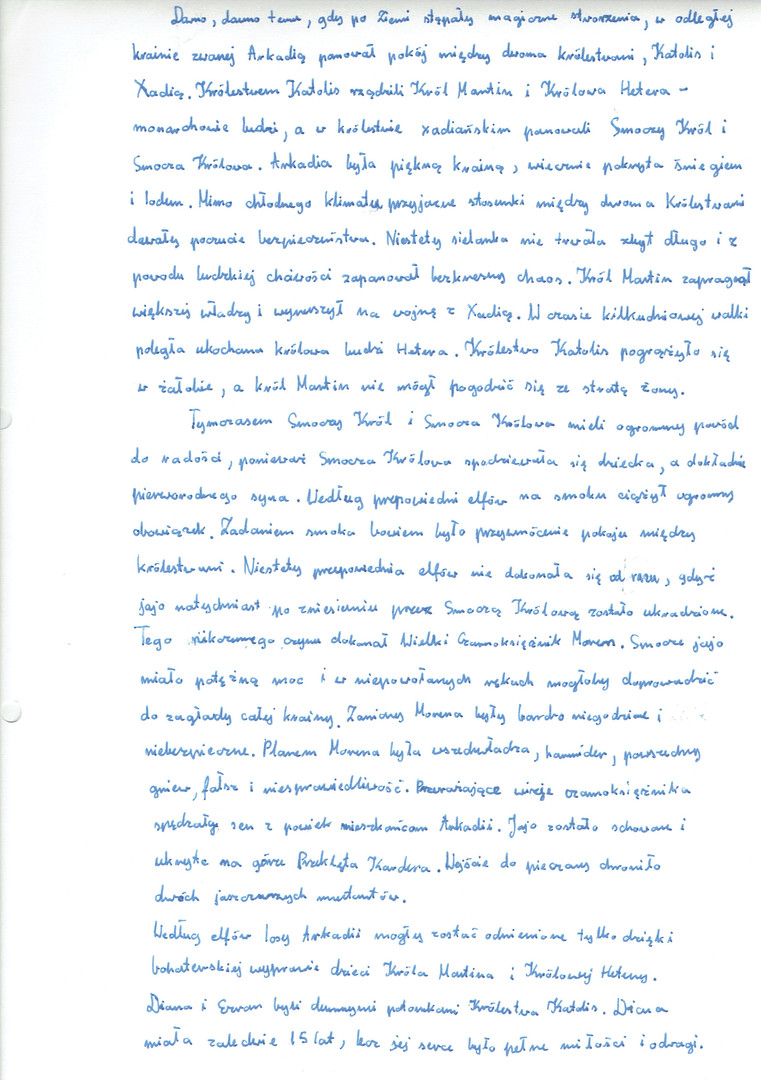 Dawno, dawno temu, gdy po Ziemi stąpały magiczne stworzenia, w odległej
krainie zwanej Arkadią panował pokój między dwoma królestwami, Katolis i
Xadią. Królestwem Katolis rządzili Król Martin i Królowa Hetera -
monarchowie ludzi, a w królestwie xadiańskim panowali Smoczy Król i
Smocza Królowa. Arkadia była piękną krainą, wiecznie pokrytą śniegiem
i lodem. Mimo chłodnego klimatu, przyjazne stosunki między dwoma Królestwami
dawały poczucie bezpieczeństwa. Niestety sielanka nie trwała zbyt długo i z
powodu ludzkiej chciwości zapanował bezkresny chaos. Król Martin zapragnął
większej władzy i wyruszył na wojnę z Xadią. W czasie kilkudniowej walki
poległa ukochana królowa ludzi Hetera. Królestwo Katolis pogrążyło się
w żałobie, a król Martin nie mógł pogodzić się ze stratą żony.
Tymczasem Smoczy Król i Smocza Królowa mieli ogromny powód
do radości, ponieważ Smocza Królowa spodziewała się dziecka, a dokładnie
pierworodnego syna. Według przepowiedni elfów na smoku ciążył ogromny
obowiązek. Zadaniem smoka bowiem było przywrócenie pokoju między
królestwami. Niestety przepowiednia elfów nie dokonała się od razu, gdyż
jajo natychmiast po zniesieniu przez Smoczą Królową zostało ukradzione.
Tego nikczemnego czynu dokonał Wielki Czarnoksiężnik Moren. Smocze jajo
miało potężną moc i w niepowołanych rękach mogłoby doprowadzić
do zagłady całej krainy. Zamiary Morena były bardzo niegodziwe i
niebezpieczne. Planem Morena była wszechwładza, harmider, powszedny
gniew, fałsz i niesprawiedliwość. Przerażające wizje czarnoksiężnika
spędzały sen z powiek mieszkańcom Arkadii. Jajo zostało schowane i
ukryte na górze Przeklęta Kardera. Wejście do pieczary chroniło
dwóch jaszczurzych mutantów.
Według elfów losy Arkadii mogły zostać odmienione tylko dzięki
bohaterskiej wyprawie dzieci Króla Martina i Królowej Hetery.
Diana i Erwan byli dumnymi potomkami Królestwa Katolis. Diana
miała zaledwie 15 lat, lecz jej serce było pełne miłości i odwagi.